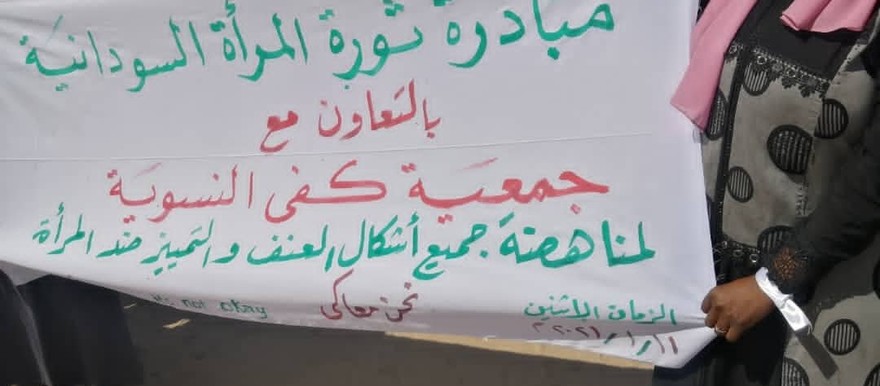 مبادرة ثورة المرأة السودانية
بالتعاون مع
جمعية كفى النسوية
لمناهضة جميع أشكال العنف والتمييز ضد المرأة
الزمان الإثنين نحن معاكي It's not okay